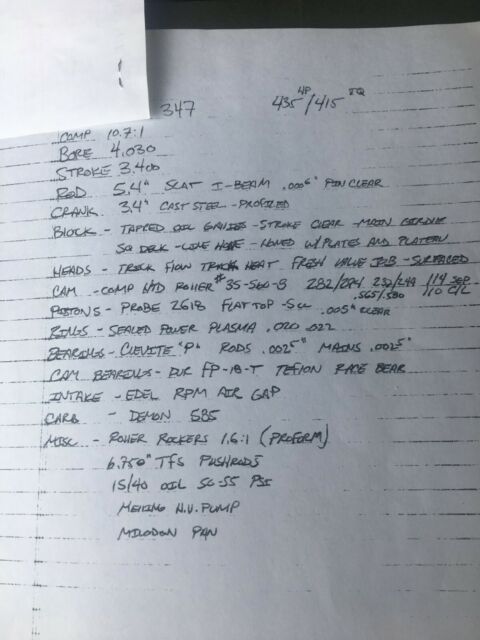 347 435 HP / 415 TQ
COMP 10.7:1
BORE 4.030
STROKE 3.400
ROD 5.4" SCAT I-BEAM .0006" PIN CLEAR
CRANK 3.4" CAST STEEL - PROFILED
BLOCK - TAPPED OIL - STROKE CLEAR - MAIN GIRDLE
SQ DECK - LINE HONE - HONED W/PLATES AND PLATEAU
HEADS - TRICK FLOW HEAT FRESH VALVE JOB - SURFACED
CAM - COMP HYD ROLLER #35-560-8 282/ 232/ 114 SEP
.565/.580 110 C/L
PISTONS - PROBE 2618 FLAT TOP - 5cc .005" CLEAR
RINGS - SEALED POWER PLASMA .020 .022
BEARINGS - CLEVITE "P" RODS .0025" MAINS .0025"
CAM BEARINGS - DUR FP-18-T TEFLON RACE BEAR
INTAKE - EDEL RPM AIR GAP
CARB - DEMON 585
MISC - ROLLER ROCKERS 1.6:1 (PROFORM)
6.750" TFS PUSHRODS
15/40 OIL 50-55 PSI
MELLING H.V. PUMP
MILODON PAN